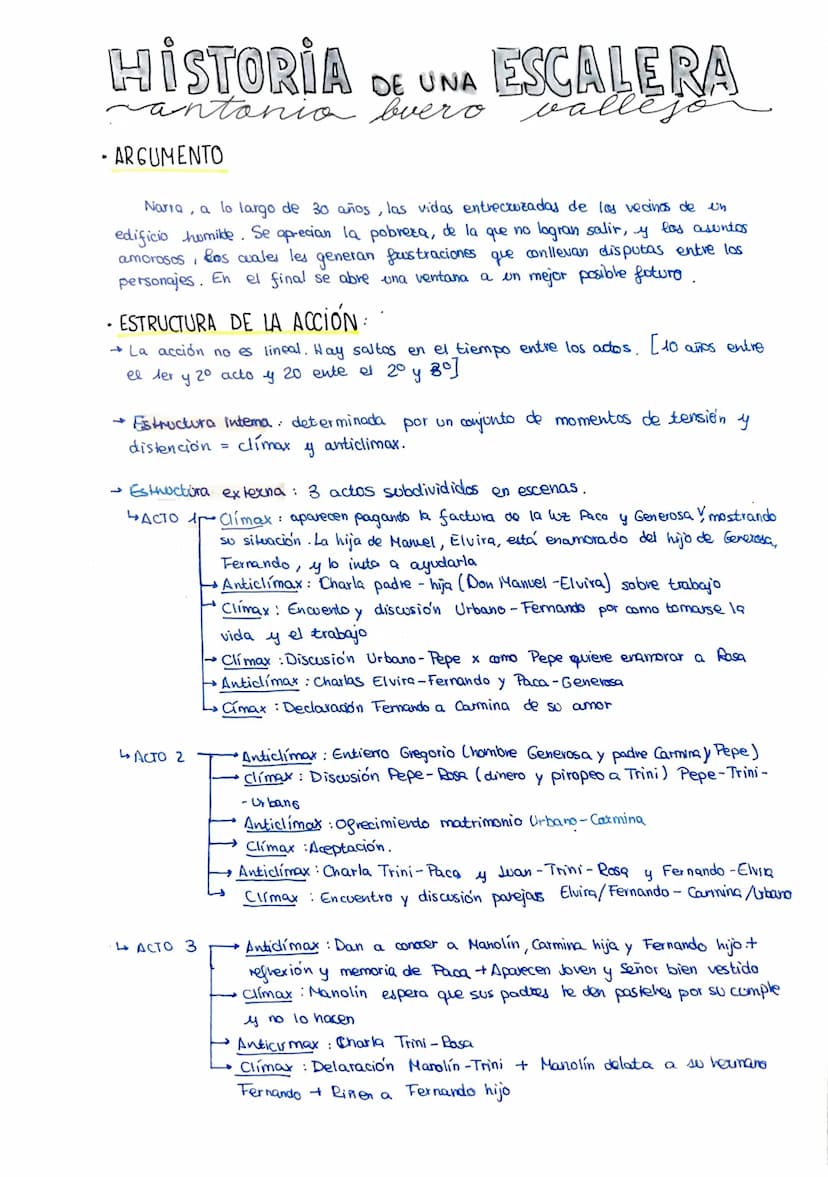 HISTORIA DE UNA ESCALERA
antonio buero vallejo
· ARGUMENTO
Narra, a lo largo de 30 años, las vidas entrecruzadas de los vecinos de un
edificio humilde. Se aprecian la pobreza, de la que no logran salir, y los asuntos
amorosos, los cuales les generan frustraciones que conllevan disputas entre los
personajes. En el final se abre una ventana a un mejor posible futuro.
· ESTRUCTURA DE LA ACCIÓN:
→ La acción no es lineal. Hay saltos en el tiempo entre los actos. [10 años entre
el 1er y 2º acto y 20 ente el 2º y 3º]
→ Estructura Interna: determinada por un conjunto de momentos de tensión y
distención = clímax y anticlimax.
→ Estructura externa: 3 actos subdivididos en escenas.
↳ ACTO 1 → Clímax: aparecen pagando la factura de la luz Paca y Generosa y mostrando
su situación. La hija de Manuel, Elvira, está enamorado del hijo de Generosa,
Fernando, y lo insta a ayudarla
→ Anticlímax: Charla padre-hija (Don Manuel-Elvira) sobre trabajo
→ Clímax: Encuento y discusión Urbano-Fernando por como tomarse la
vida y el trabajo
→ Clímax: Discusión Urbano-Pepe x como Pepe quiere enamorar a Rosa
→ Anticlímax: Charlas Elvira-Fernando y Paca-Generosa
↳ Címax: Declaración Fernando a Carmina de su amor
↳ ACTO 2 → Anticlímax: Entierro Gregorio (hombre Generosa y padre Carmina y Pepe)
→ Clímax: Discusión Pepe-Rosa (dinero y piropeo a Trini) Pepe-Trini-
-Urbano
→ Anticlímax: Ofrecimiento matrimonio Urbano-Carmina
→ Clímax: Aceptación.
→ Anticlímax: Charla Trini-Paca y Juan-Trini-Rosa y Fernando-Elvira
↳ Clímax: Encuentro y discusión parejas Elvira/Fernando - Carmina/Urbano
↳ ACTO 3 → Anticlímax: Dan a conocer a Manolín, Carmina hija y Fernando hijo +
reflexión y memoria de Paca + Aparecen Joven y Señor bien vestido
→ Clímax: Manolín espera que sus padres le den pasteles por su cumple
y no lo hacen
→ Anticlímax: Charla Trini-Rosa
↳ Clímax: Delaración Manolín-Trini + Manolín delata a su hermano
Fernando + Riñen a Fernando hijo